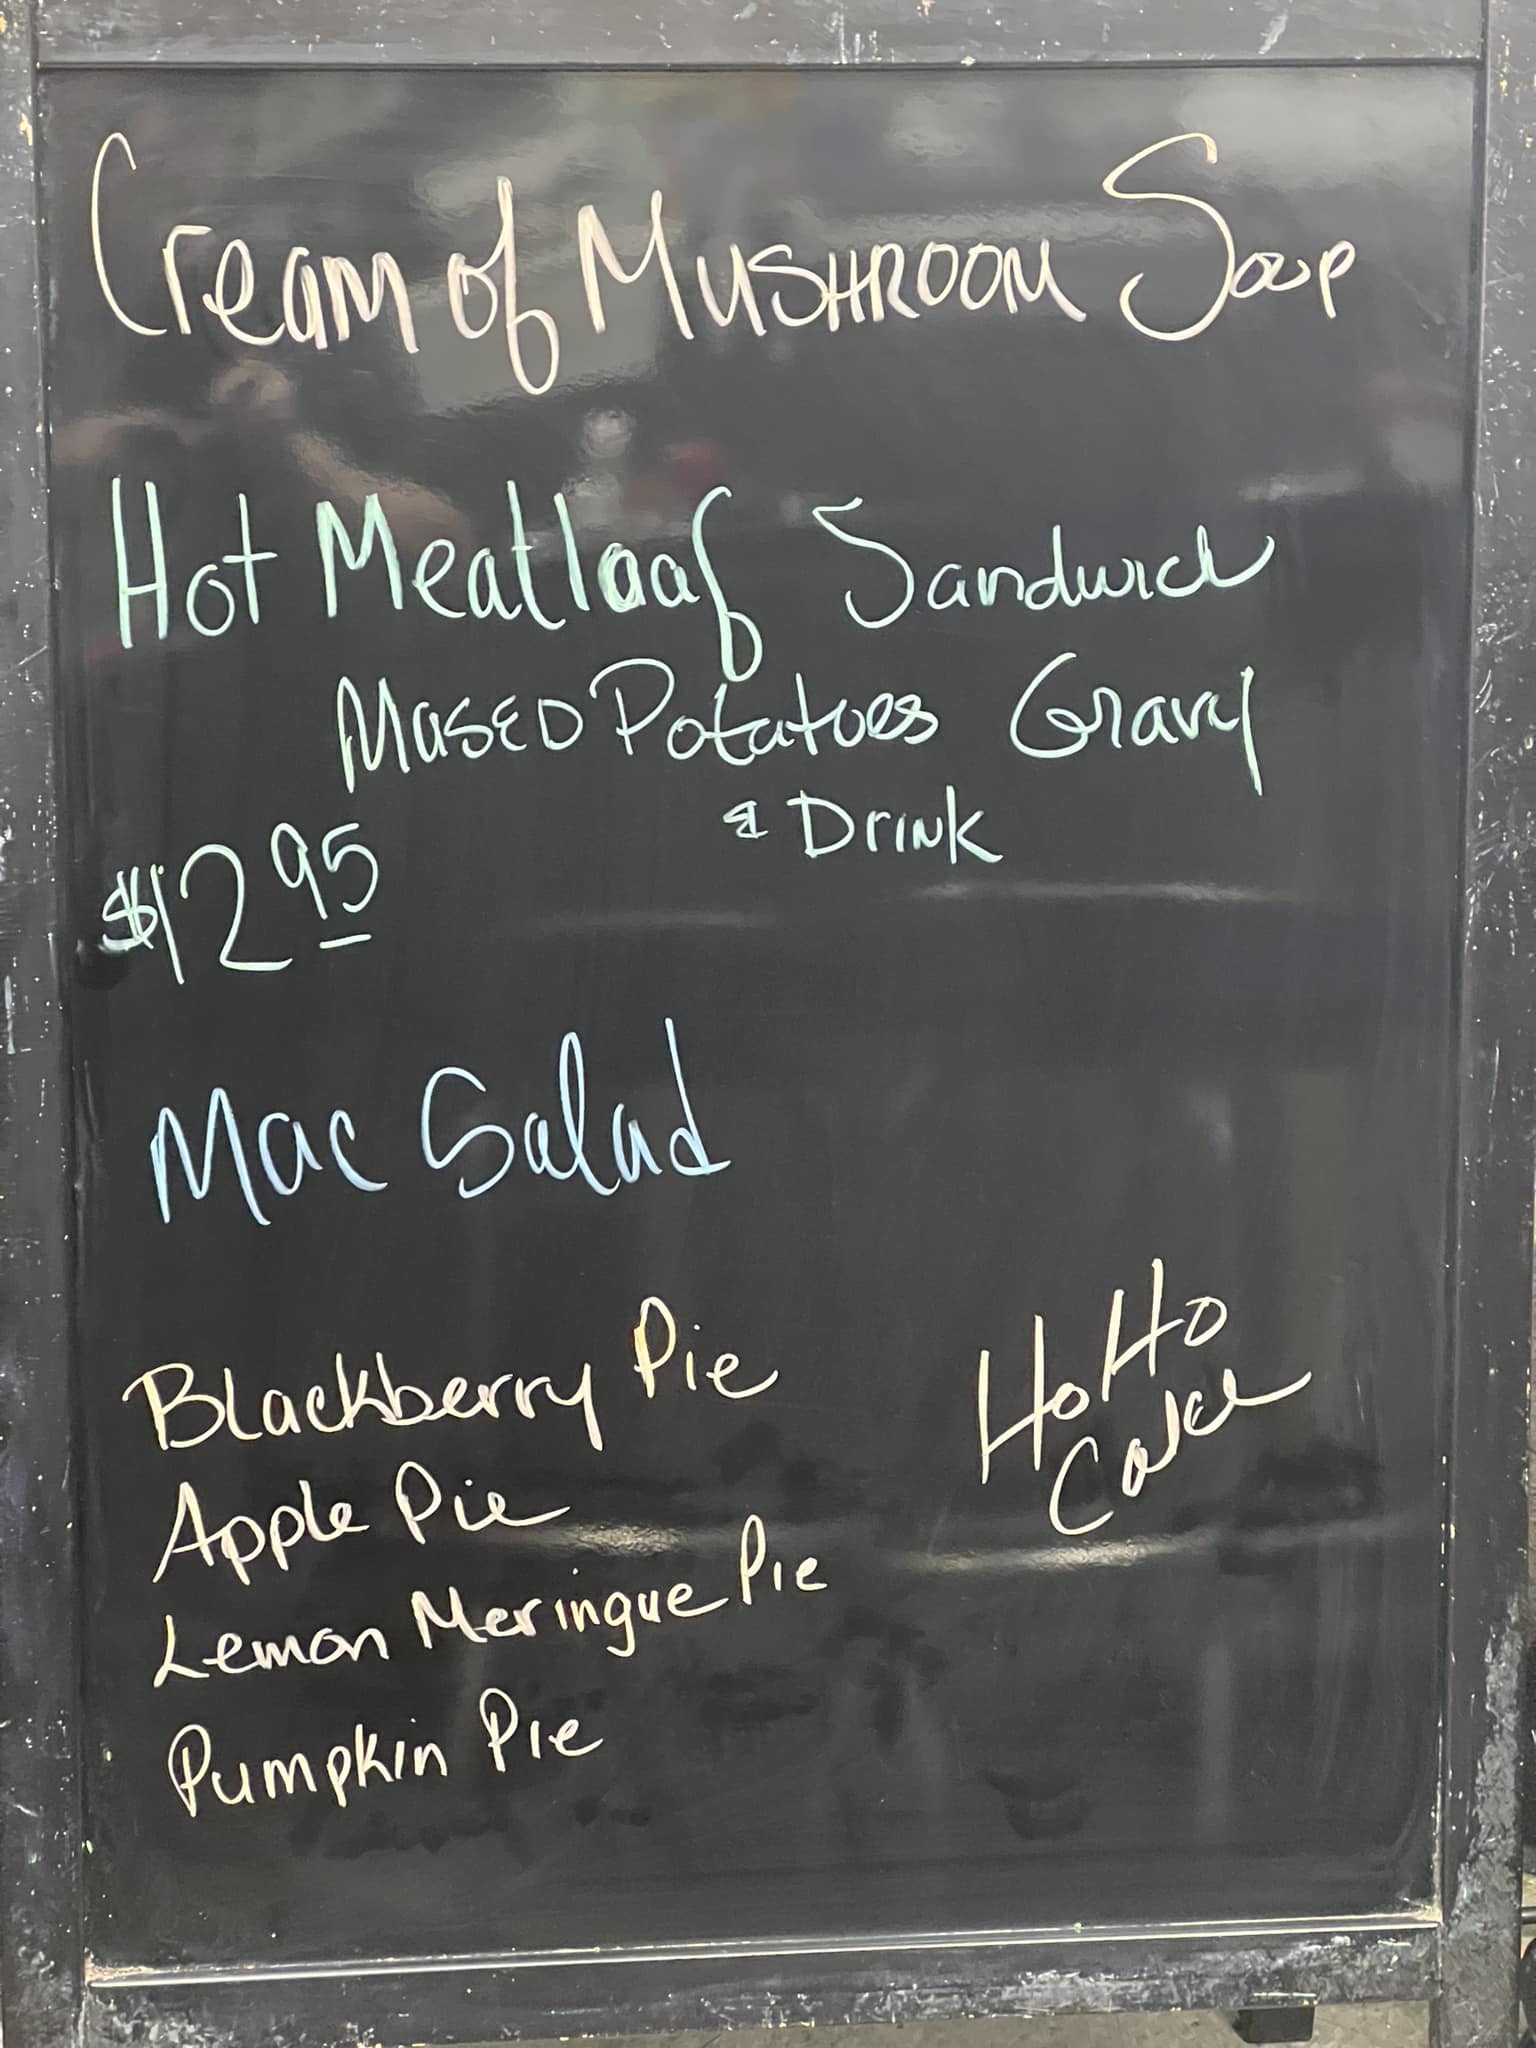 Cream of MUSHROOM Soup
Hot Meatloaf Sandwich
MASED Potatoes Gravy
& Drink
$12.95
Mac Salad
Blackberry Pie
Apple Pie
Lemon Meringue Pie
Pumpkin Pie
Ho Ho
Cake